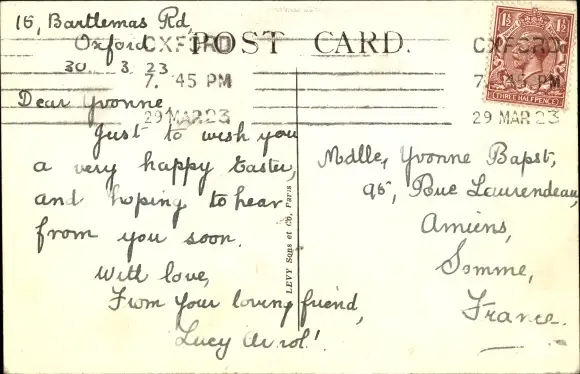 15, Bartlemas Rd,
Oxford
30. 3. 23
POST CARD.
OXFORD
7. 45 PM
29 MAR 23
OXFORD
7. 45 PM
29 MAR 23
1½
1½
THREE HALFPENCE
Dear Yvonne
Just to wish you
a very happy Easter,
and hoping to hear
from you soon.
With love,
From your loving friend,
Lucy
LEVY Sons et Co, Paris
Mdlle, Yvonne Bapst,
95, Rue Laurendeau,
Amiens,
Somme,
France.